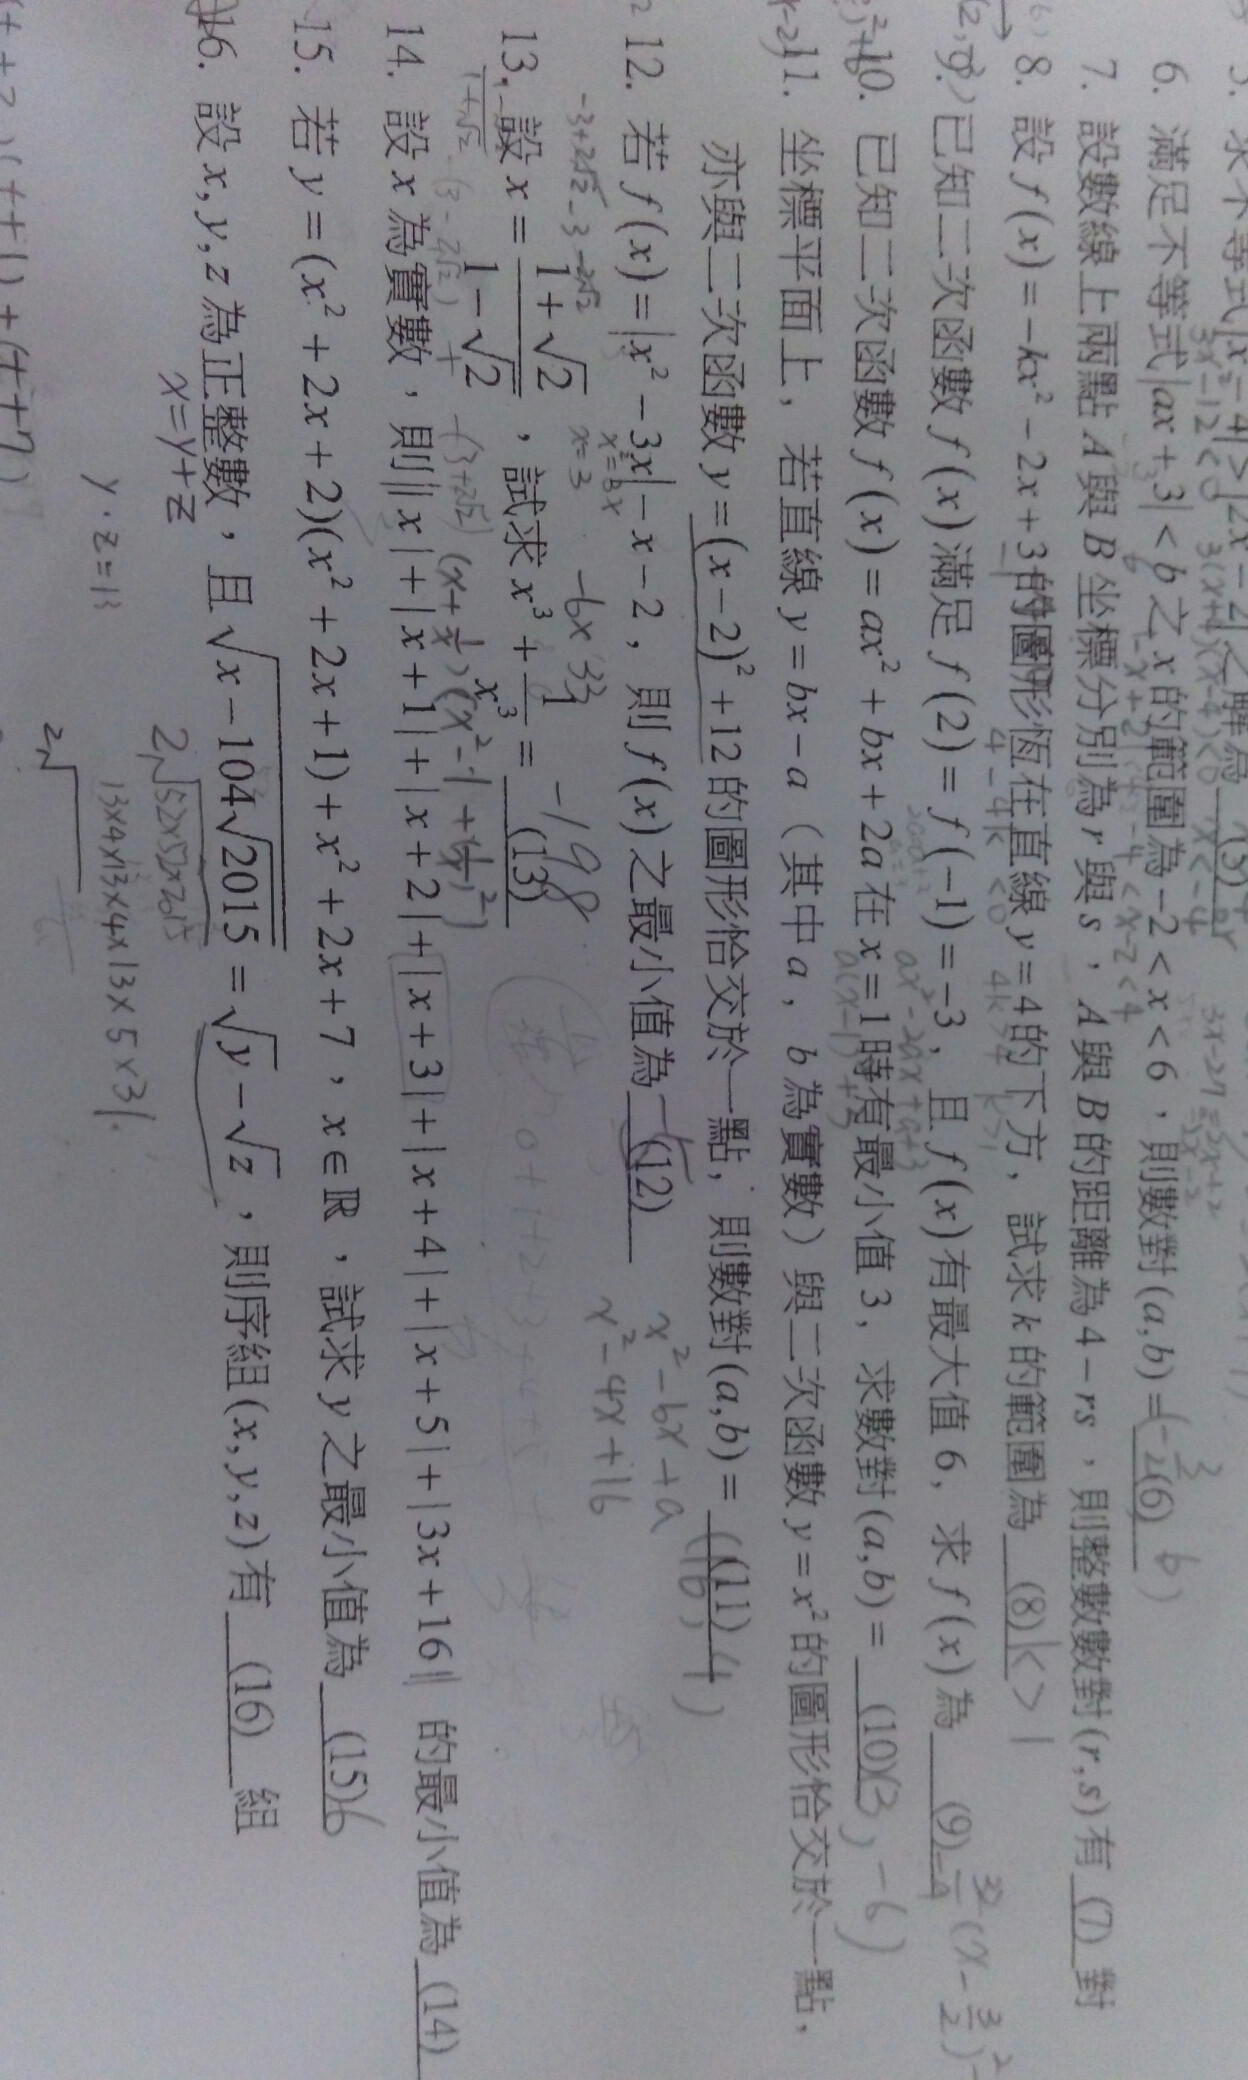 5. 求不等式|x-4|>|2x-2|之解為 (5)
6. 滿足不等式|ax+3|<b之x的範圍為-2<x<6，則數對(a,b)= (6)
7. 設數線上兩點A與B坐標分別為r與s，A與B的距離為4-rs，則整數數對(r,s)有 (7) 對
8. 設f(x)=-kx²-2x+3的圖形恆在直線y=4的下方，試求k的範圍為 (8) k>1
9. 已知二次函數f(x)滿足f(2)=f(-1)=-3，且f(x)有最大值6，求f(x)為 (9)
10. 已知二次函數f(x)=ax²+bx+2a在x=1時有最小值3，求數對(a,b)= (10) (3,-6)
11. 坐標平面上，若直線y=bx-a（其中a，b為實數）與二次函數y=x²的圖形恰交於一點，
亦與二次函數y=(x-2)²+12的圖形恰交於一點，則數對(a,b)= (11) (16,4)
x²-bx+a
x²-4x+16
12. 若f(x)=|x²-3x|-x-2，則f(x)之最小值為 (12) -5
13. 設x=\frac{1+√2}{1-√2}，試求x³+\frac{1}{x³}= (13) -198
14. 設x為實數，則||x|+|x+1|+|x+2|+|x+3|+|x+4|+|x+5|+|3x+16||的最小值為 (14)
15. 若y=(x²+2x+2)(x²+2x+1)+x²+2x+7，x∈ℝ，試求y之最小值為 (15) 6
16. 設x,y,z為正整數，且√(x-104√2015)=√y-√z，則序組(x,y,z)有 (16) 組
x=y+z
2√52×52×2015
y·z=13
13×4×13×4×13×5×31
2√